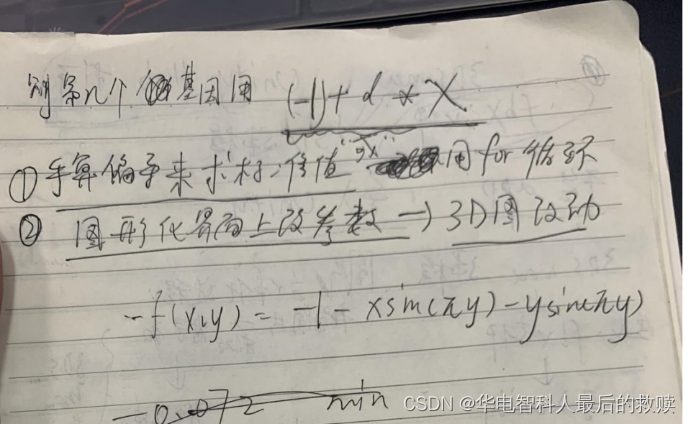 别第n个基因用 (-1)+d*X
①手算偏导来求标准值 用for循环
②图形化界面上改参数→3D图改动
-f(x,y) = -1 - xsin(πy) - ysin(πy)
-0.072 min
CSDN @华电智科人最后的救赎